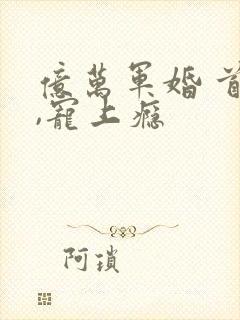 億萬軍婚 首
,寵上癮
阿瑣